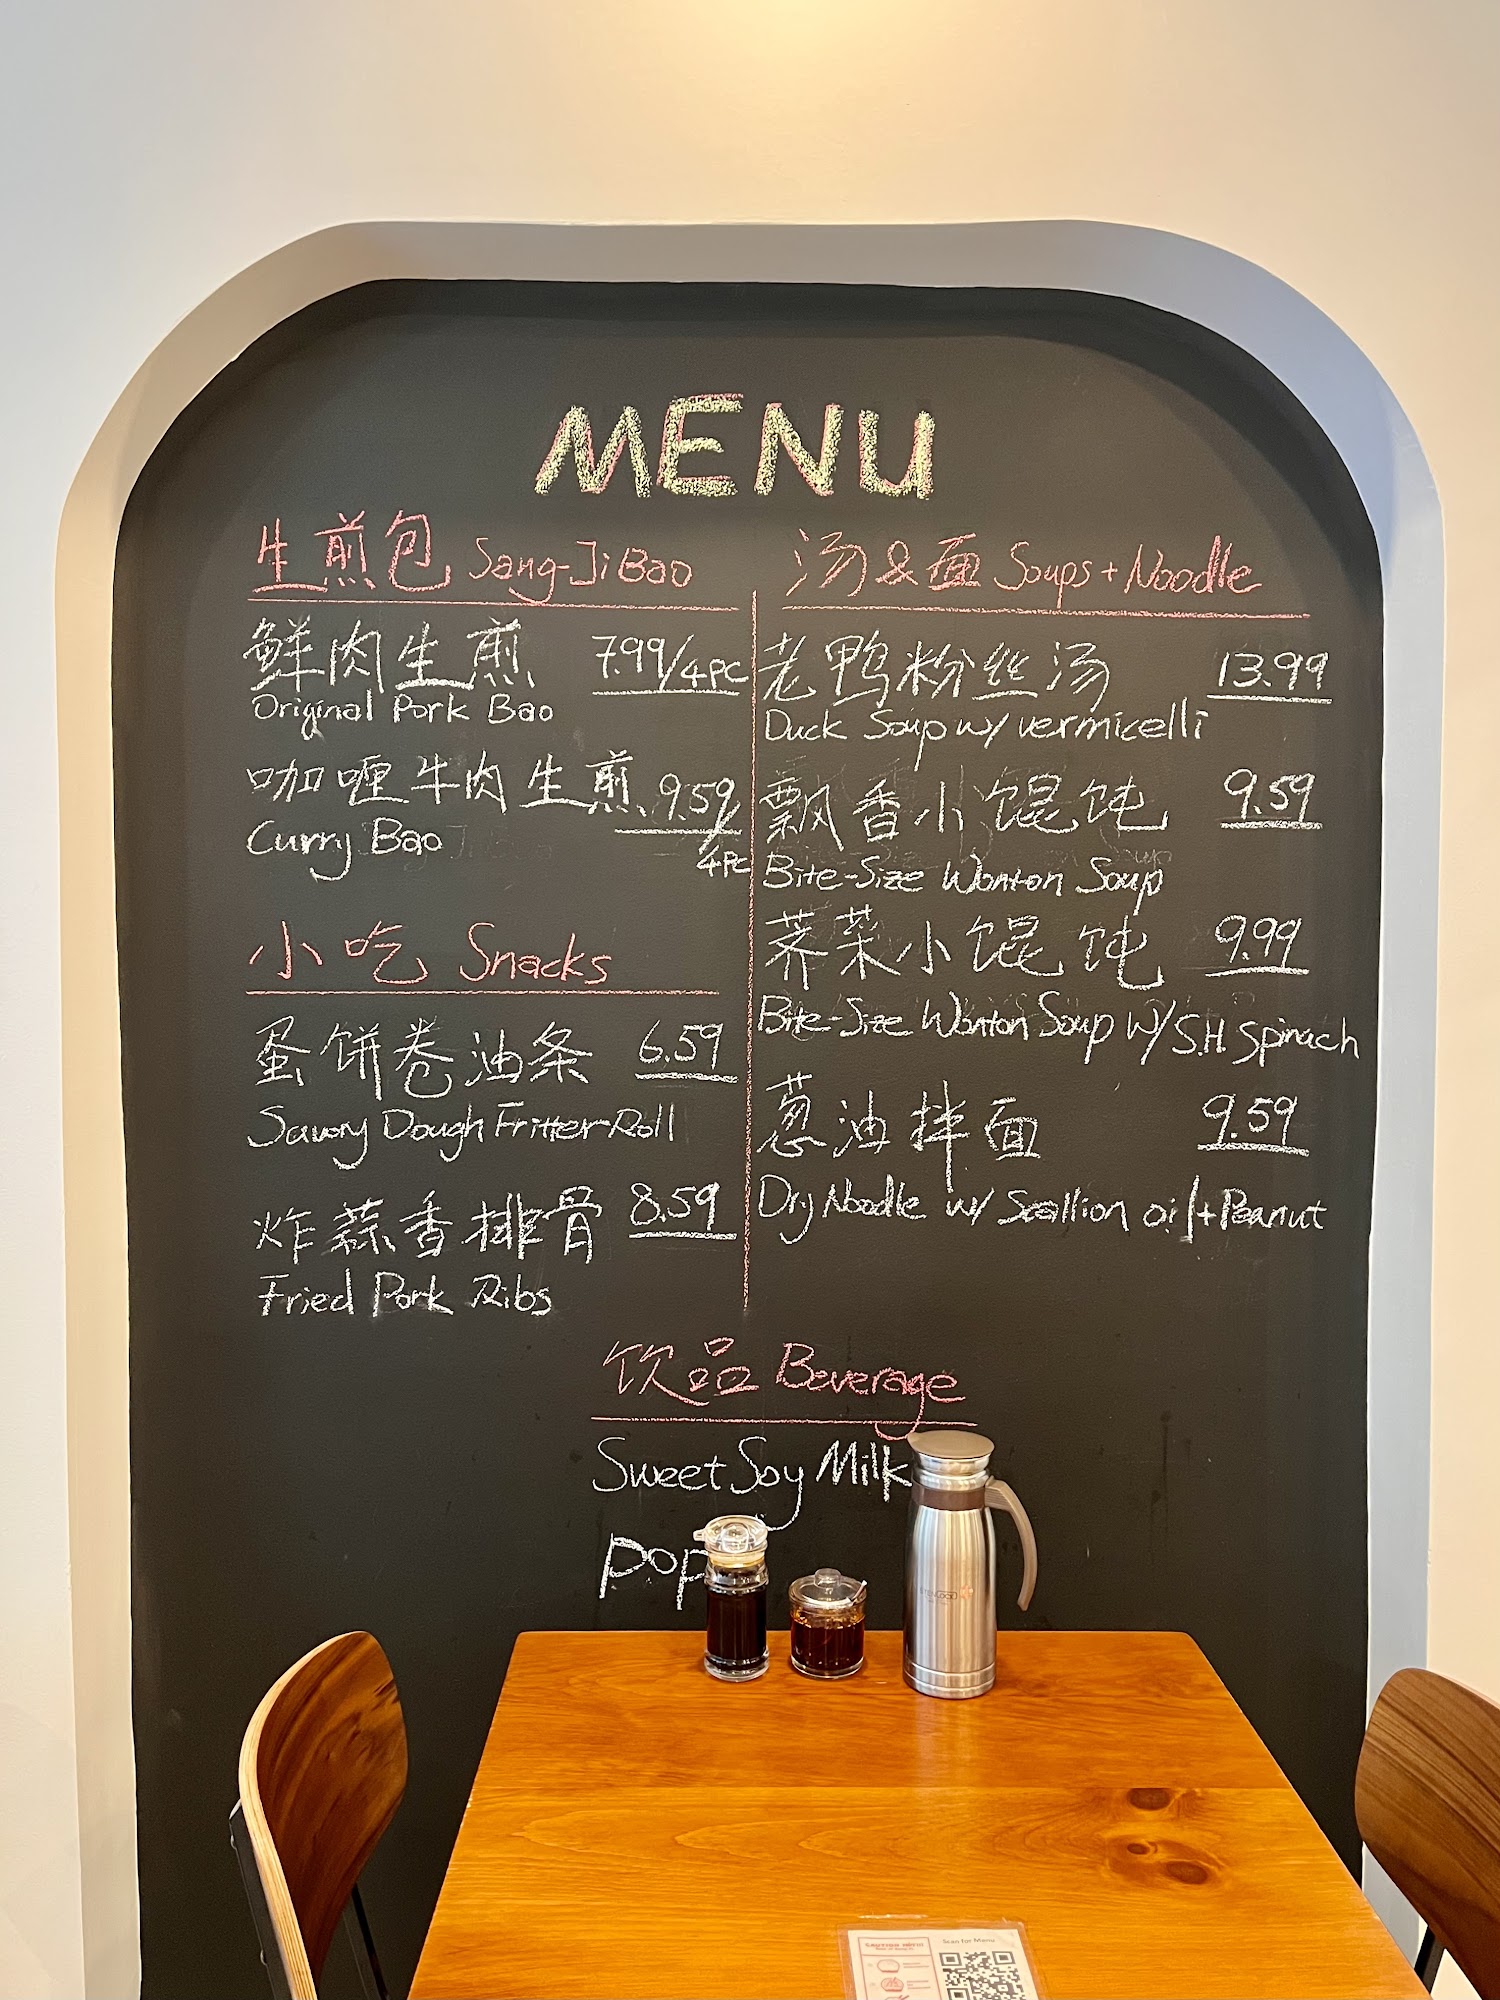 MENU
生煎包 Sang-Ji Bao
鲜肉生煎 7.99/4PC
Original Pork Bao
咖喱牛肉生煎 9.59/4PC
Curry Bao
小吃 Snacks
蛋饼卷油条 6.59
Savory Dough Fritter-Roll
炸蒜香排骨 8.59
Fried Pork Ribs
汤&面 Soups + Noodle
老鸭粉丝汤 13.99
Duck Soup w/ vermicelli
飘香小馄饨 9.59
Bite-Size Wonton Soup
荠菜小馄饨 9.99
Bite-Size Wonton Soup w/ S.H. Spinach
葱油拌面 9.59
Dry Noodle w/ Scallion oil + Peanut
饮品 Beverage
Sweet Soy Milk
POP
Scan for Menu